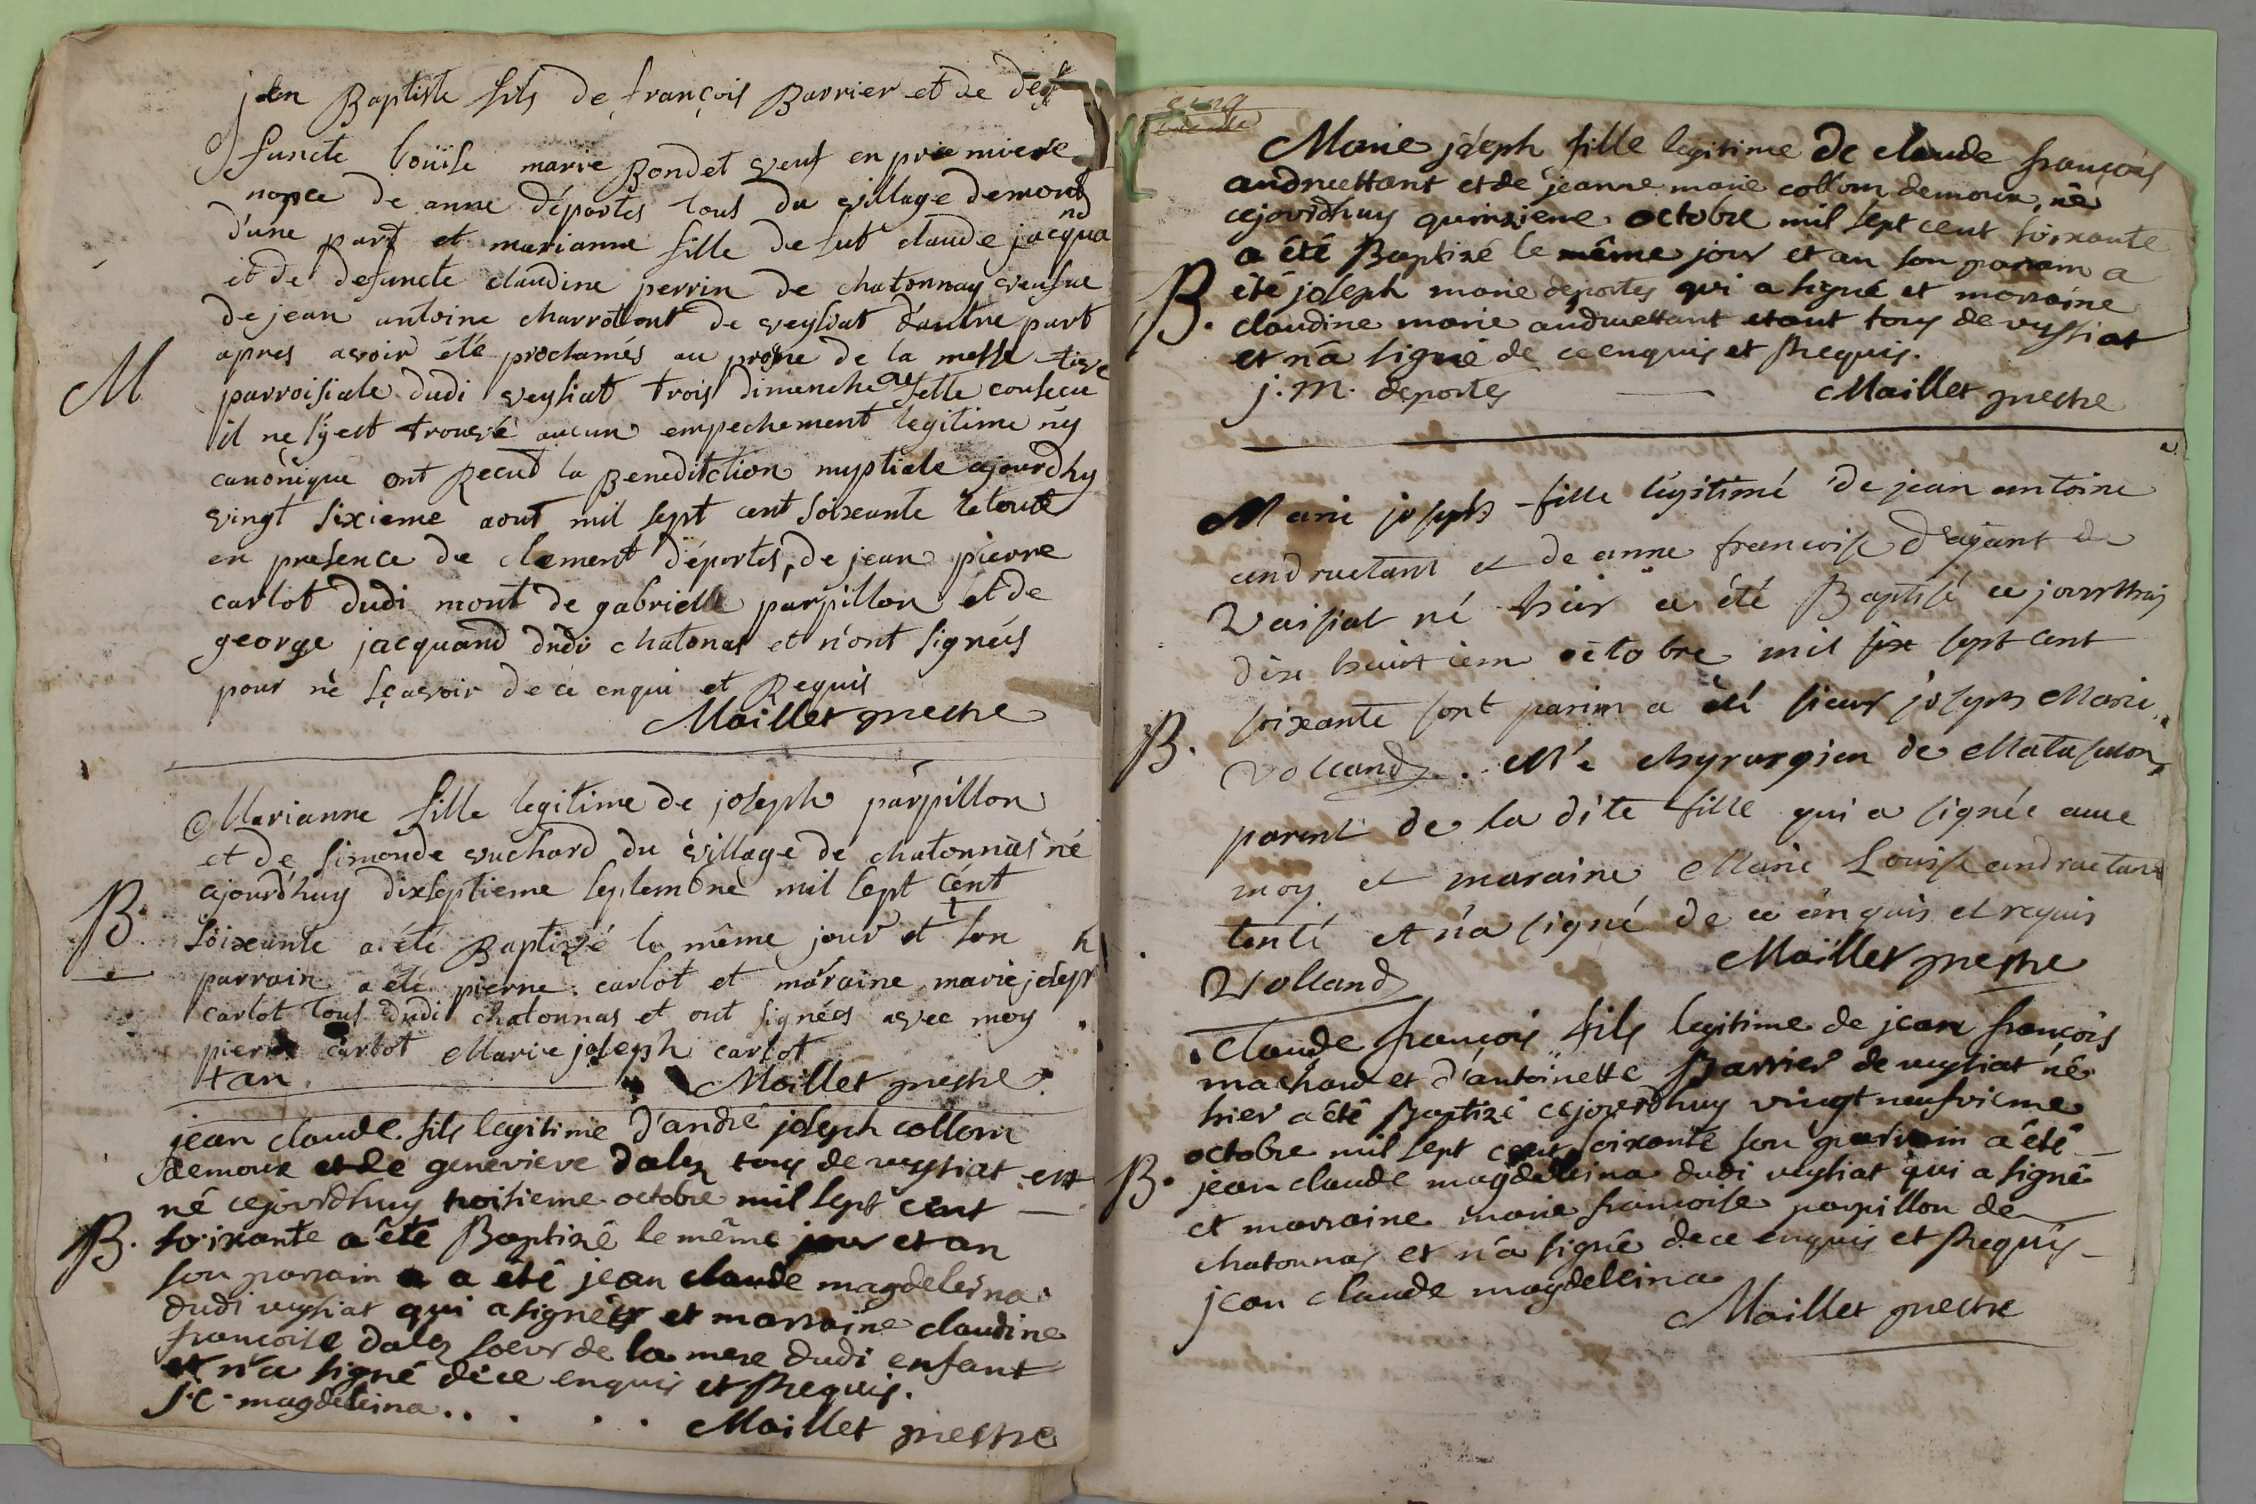 jean Baptiste fils de françois Barrier et de def
functe loüise marie Bondet veuf en premiere
nopce de anne déportes tous du village de mont
d'une part et marianne fille de fut claude jacqua
nd
et de defuncte claudine perrin de chatonnay veufue
de jean antoine charrotont de veysiat d'autre part
apres avoir été proclamés au prône de la messe
parroisiale dudi veysiat trois dimenche et fette consecu
tive
M
il ne s'y est trouvé aucun empechement legitime ny
canonique ont Recut la Beneditction nuptiale ajourdhy
vingt sixieme aout mil sept cent soixante le tout
en presence de clement déportes, de jean pierre
carlot dudi mont de gabrielle parpillon et de
george jacquand dudi chatonas et n'ont signés
pour nè sçavoir de cè enqui et Requis
Maillet prestre
Marianne fille legitime de joseph parpillon
et de simonde vuchard du village de chatonnas né
ajourd'huy dixseptieme septembre mil sept cent
B.
soixante a été Baptizé le même jour et son
parrain a été pierre carlot et maraine marie joseph
carlot tous dudi chatonnas et ont signés avec moy
pierre carlot Marie joseph carlot
tan
Maillet prestre
jean claude fils legitime d'andre joseph collom
demoux et de genevieve dalez tous de veysiat est
né cejourdhuy troisieme octobre mil sept cent
B.
soixante a été Baptizé le même jour et an
son parrain a été jean claude magdeleina
dudi veysiat qui a signé et marraine claudine
francoise dalez soeur de la mere dudi enfant
et n'a signé de ce enquis et Requis.
j.c. magdeleina
Maillet prestre
cinq
Marie joseph fille legitime de claude françois
andruettant et de jeanne marie collom demoux, né
cejourdhuy quinzieme octobre mil sept cent soixante
a été Baptizé le même jour et an son parrain a
B.
été joseph marie deportes qui a signé et marraine
claudine marie andruettant etant tous de veysiat
et n'a signé de ce enquis et Requis.
j. m. deportes
Maillet prestre
Marie joseph fille légitimé de jean antoine
andructant et de anne francoise d'agant de
Vaisiat né hier a été Baptisé ce jourdhuy
dix huitiem octobre mil six sept cent
soixante sont parin a été sieur joseph Marie
B.
Volland Me chyrurgien de Matafelon
parent de la dite fille qui a signée avec
moy et maraine Marie Louise andructant
tenté et n'a signé de ce enquis et requis
Maillet prestre
Volland
claude françois fils legitime de jean françois
machard et d'antoinette Barrier de veysiat né
hier a été Baptizé cejourdhuy vingt neufvieme
octobre mil sept cent soixante son parrain a été
B.
jean claude magdeleina dudi veysiat qui a signé
et marraine marie francoise parpillon de
chatonnas et n'a signé de ce enquis et Requis
jean claude magdelleina
Maillet prestre